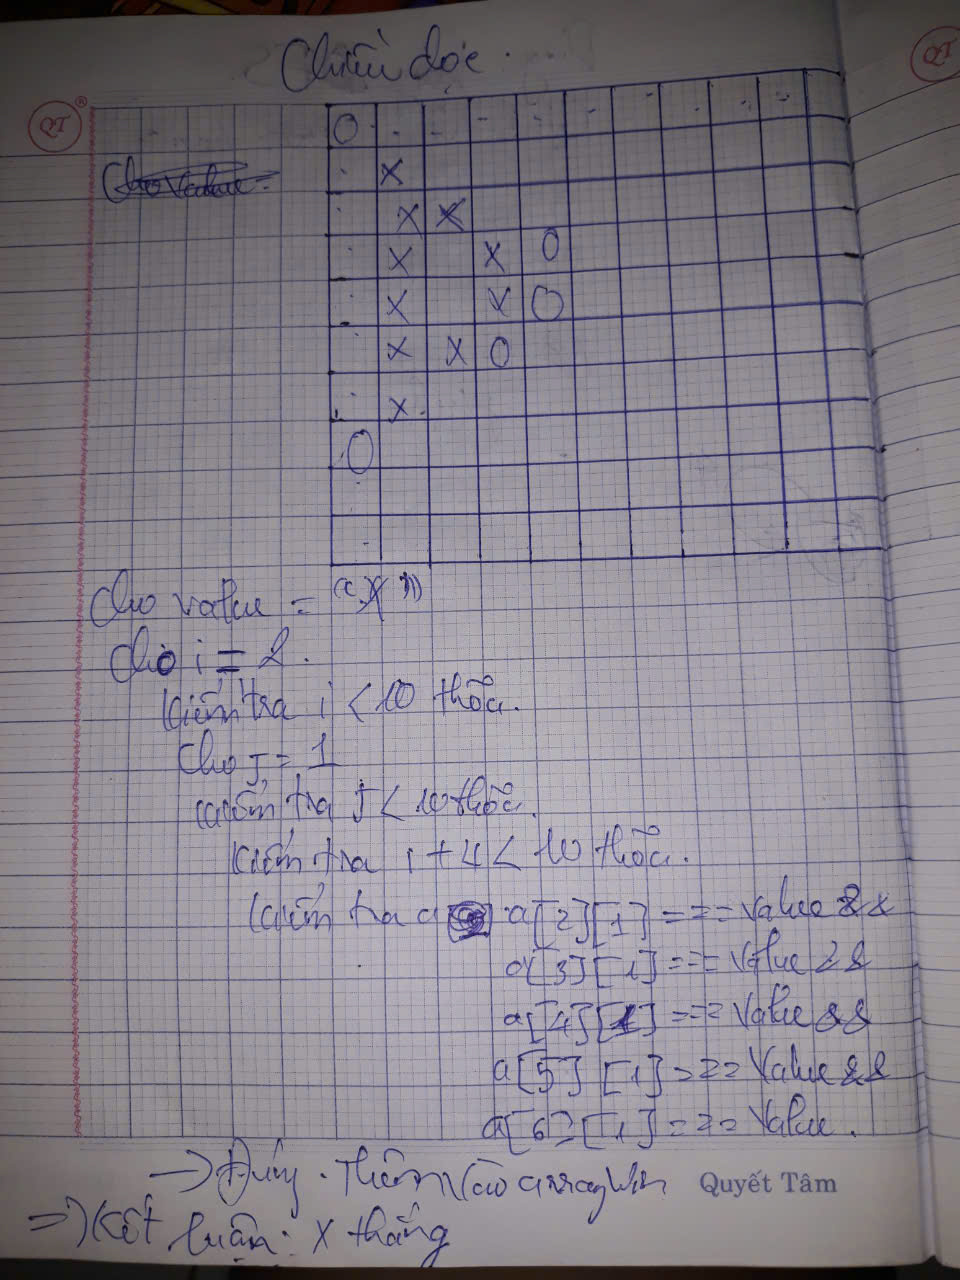 Chiều dọc.
QT ® QT
O
Cho value.
X
X X
X X O
X X O
X X O
X
O
Cho value = "X"
Cho i = 2.
Kiểm tra i < 10 thỏa.
Cho J = 1
Kiểm tra J < 10 thỏa.
Kiểm tra i + 4 < 10 thỏa.
Kiểm tra a[2][1] === value &&
a[3][1] === value &&
a[4][1] === value &&
a[5][1] === value &&
a[6][1] === value.
→ Đúng. Thêm vào arrayWin
Quyết Tâm
=> Kết luận: X thắng